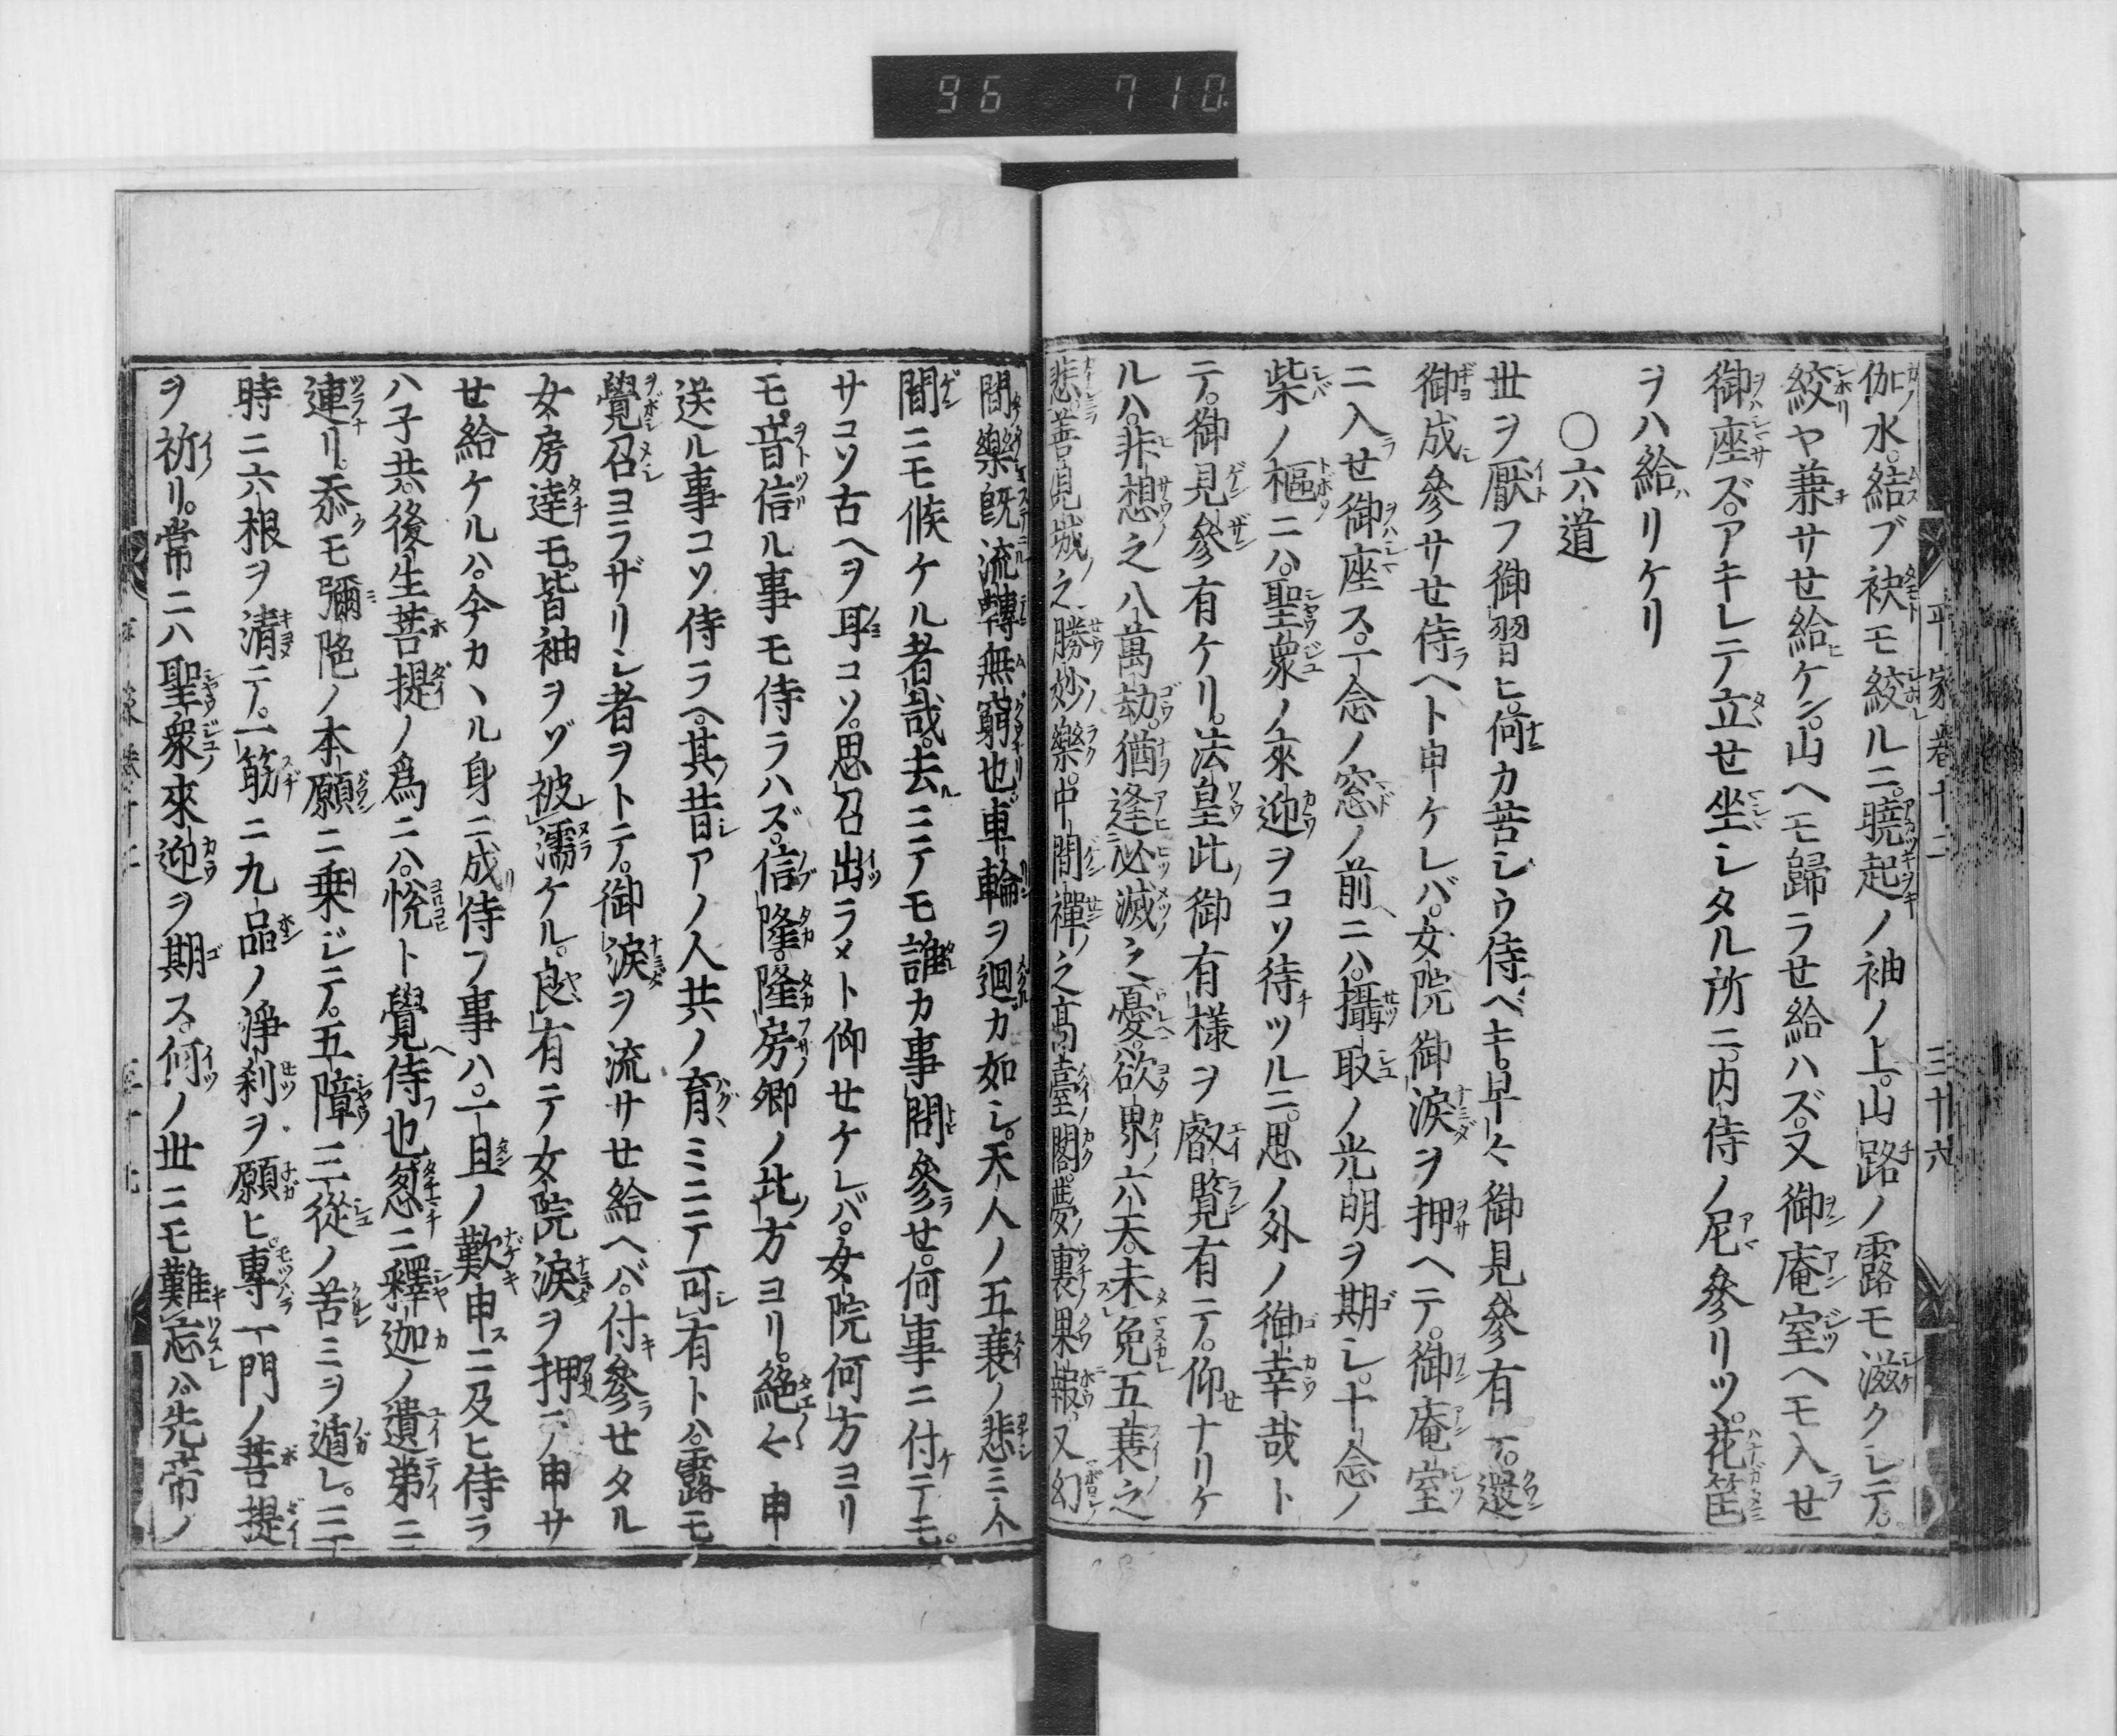 96 710
平家巻十二 三十六
伽水結ブ袂モ絞ルニ。曉起ノ袖ノ上。山路ノ露モ滋クシテ。
絞ヤ兼サセ給ケン。山ヘモ歸ラセ給ハズ。又御庵室ヘモ入セ
御座ズ。アキレテ立セ坐シタル所ニ。内侍ノ尼參リツ丶。花筐
ヲハ給リケリ
〇六道
世ヲ厭フ御習ヒ。何カ苦シウ侍ベキ。早々御見參有テ。還
御成參サセ侍ヘト申ケレバ。女院御淚ヲ押ヘテ。御庵室
ニ入セ御座ス。一念ノ窓ノ前ニハ。攝取ノ光明ヲ期シ。十念ノ
柴ノ樞ニハ。聖衆ノ來迎ヲコソ待ツルニ。思ノ外ノ御幸哉ト
テ。御見參有ケリ。法皇此御有樣ヲ叡覽有テ。仰ナリケ
ルハ。非想之八萬劫。猶逢必滅之憂。欲界六天。未免五衰之
悲。善見城之勝妙樂。中間禪之高臺閣。夢裏果報。又幻
間樂。既流轉無窮也。車輪ヲ廻カ如シ。天人ノ五衰ノ悲ミ。人
間ニモ候ケル者哉。去ニテモ誰カ事問參セ。何事ニ付テモ。
サコソ古ヘヲ耳コソ。思召出ラメト仰セケレバ。女院何方ヨリ
モ。音信ル事モ侍ラハズ。信隆。隆房卿ノ北方ヨリ。絶々申
送ル事コソ侍ラヘ。其昔アノ人共ノ育ミニテ可有トハ。露モ
覺召ヨラザリシ者ヲトテ。御淚ヲ流サセ給ヘバ。付參セタル
女房達モ。皆袖ヲゾ被濡ケル。良有テ女院淚ヲ押テ申サ
セ給ケルハ。今カヽル身ニ成侍フ事ハ。一旦ノ歎申ニ及ヒ侍ラ
ハ子共。後生菩提ノ爲ニハ。悅ト覺侍也。忽ニ釋迦ノ遺弟ニ
連リ。忝クモ彌陀ノ本願ニ乗ジテ。五障三從ノ苦ミヲ遁レ。三
時ニ六根ヲ清テ。一筋ニ九品ノ淨刹ヲ願ヒ。專一門ノ菩提
ヲ祈リ。常ニハ聖衆來迎ヲ期ス。何ノ世ニモ難忘ハ。先帝ノ